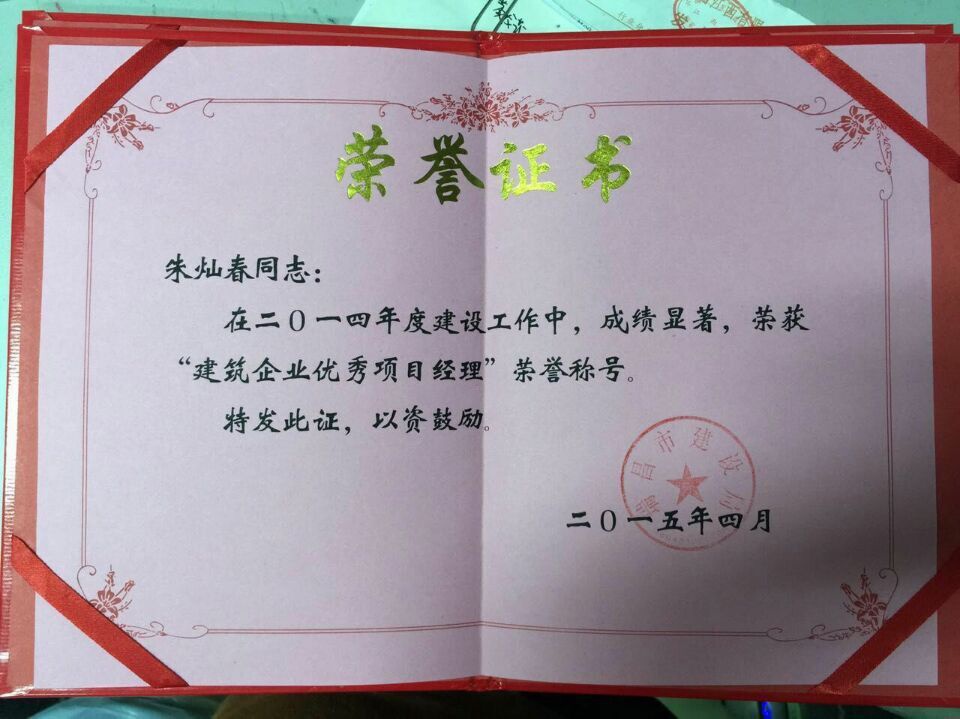 荣誉证书
朱灿春同志：
在二〇一四年度建设工作中，成绩显著，荣获
“建筑企业优秀项目经理”荣誉称号。
特发此证，以资鼓励。
昌市建设局
二〇一五年四月